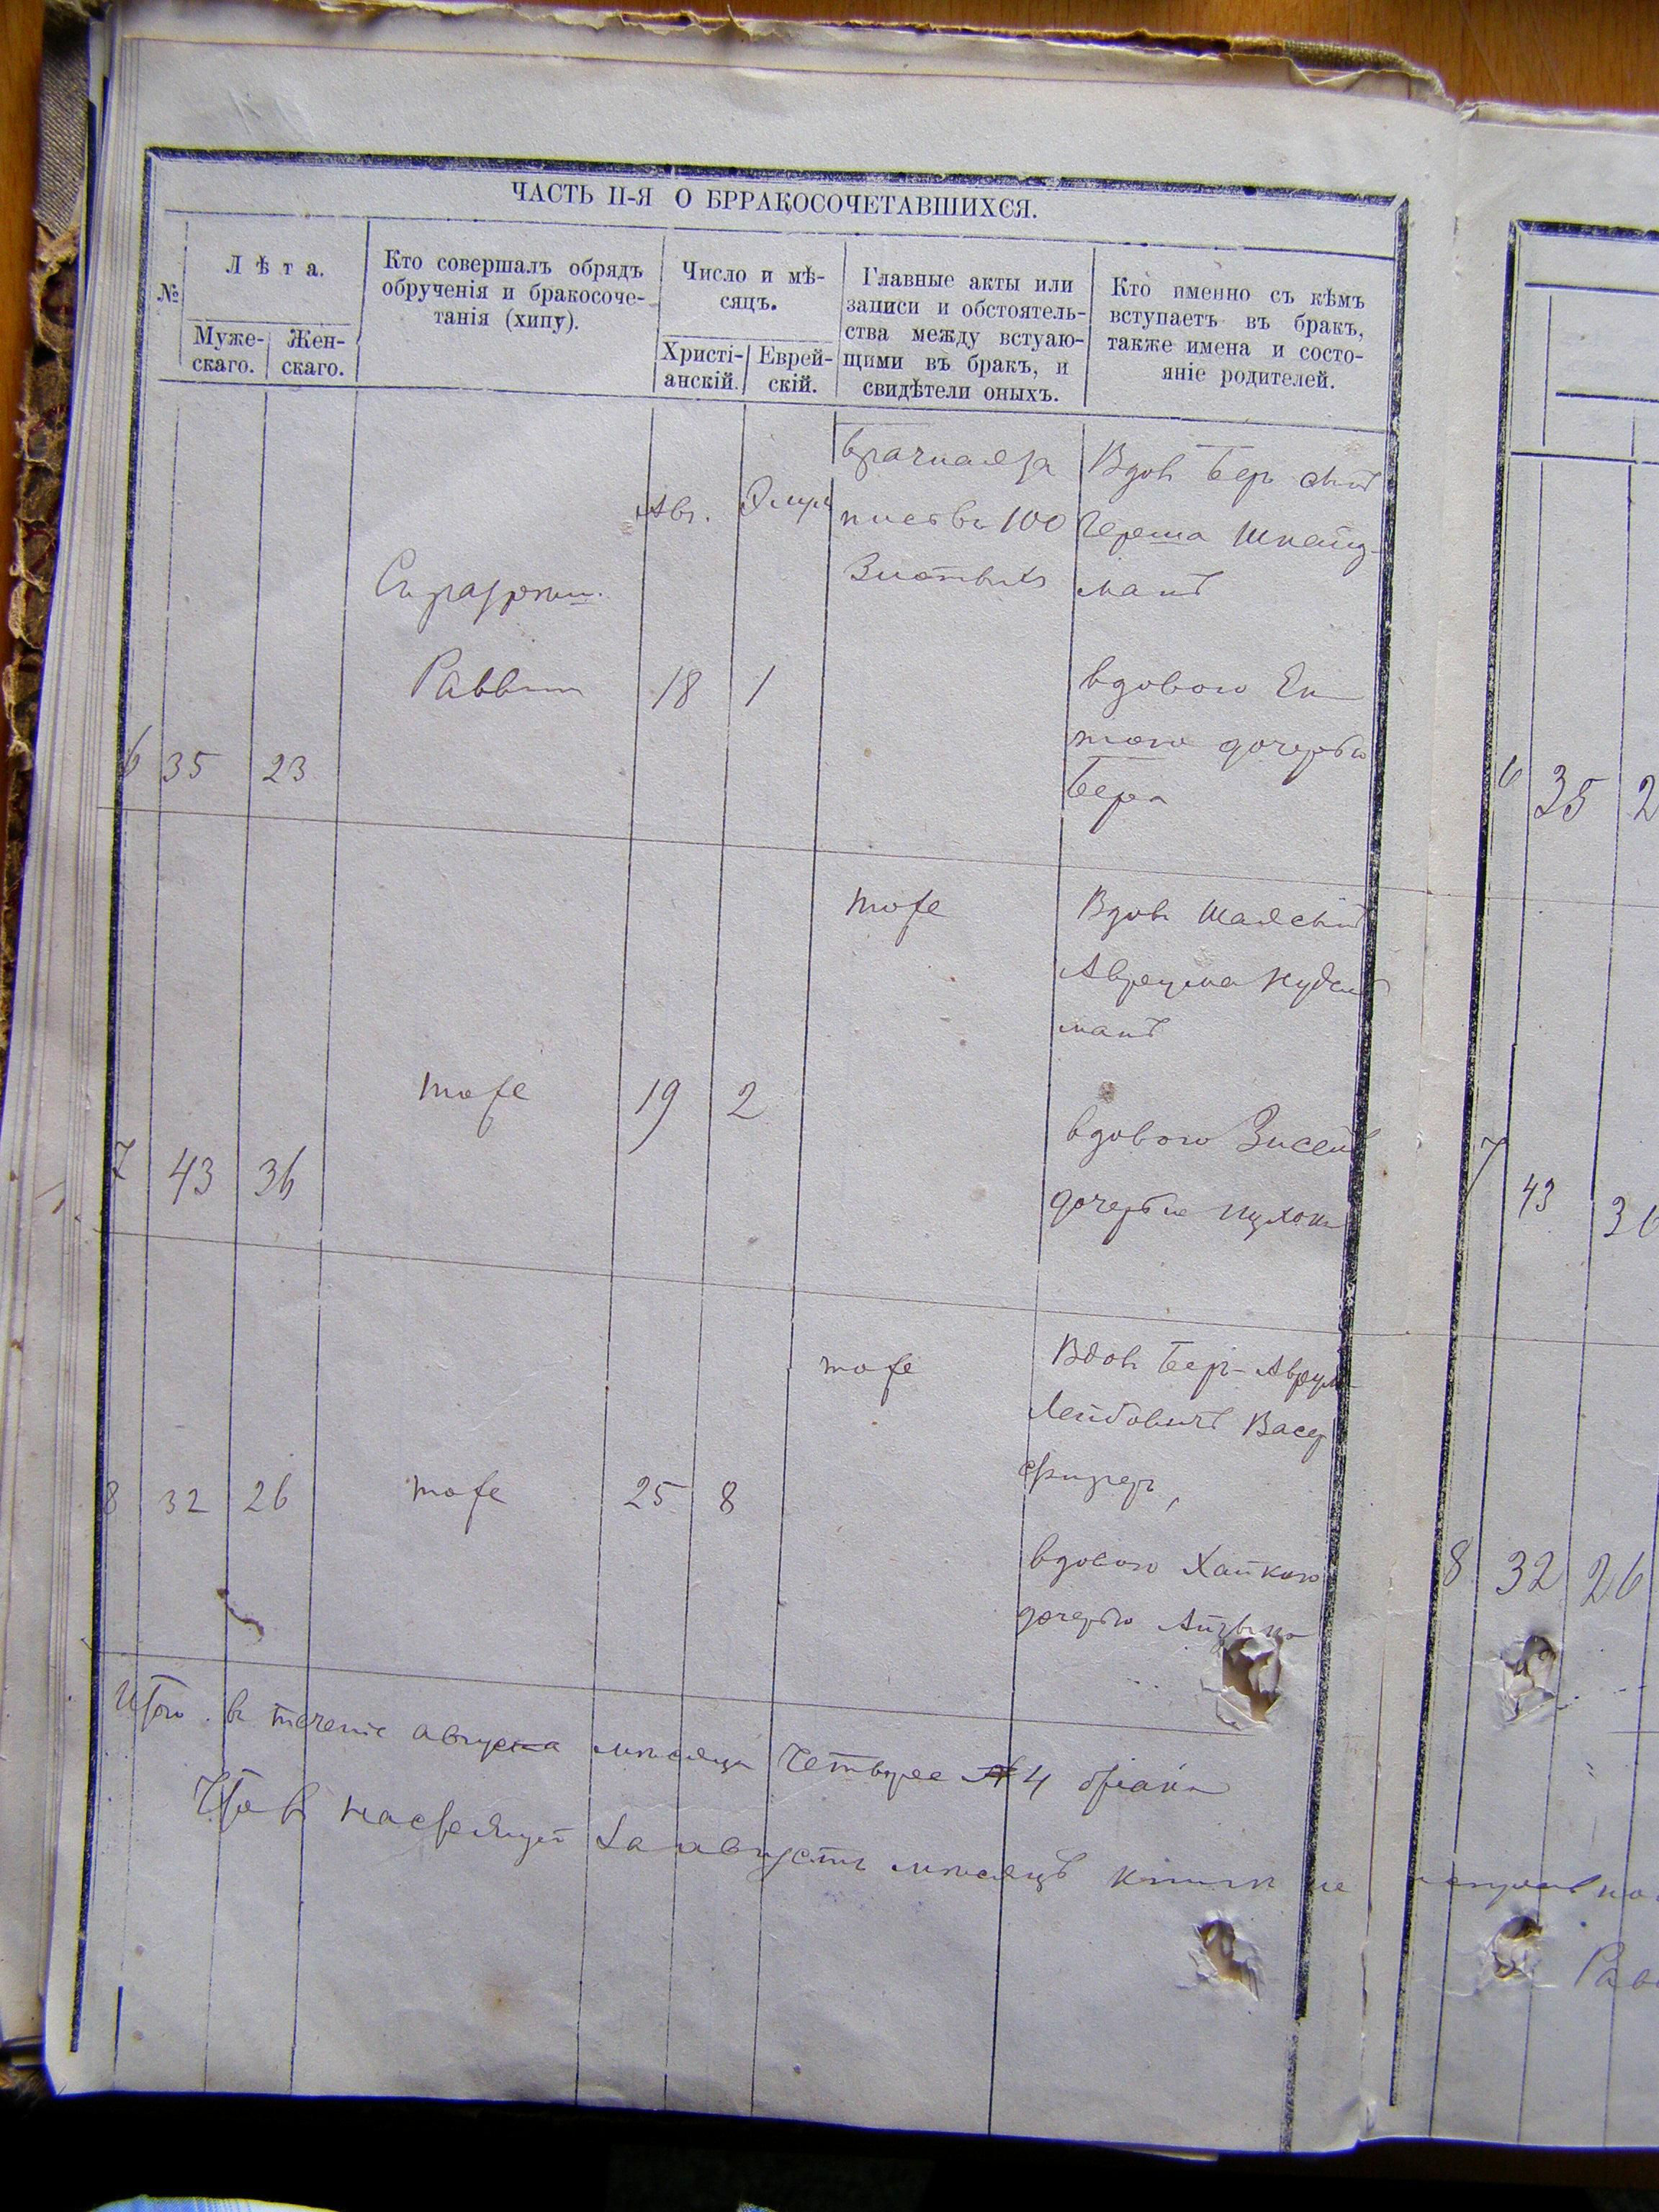 ЧАСТЬ II-Я О БРРАКОСОЧЕТАВШИХСЯ.
№
Лѣта.
Муже-
скаго.
Жен-
скаго.
Кто совершалъ обрядъ
обрученія и бракосоче-
танія (хипу).
Число и мѣ-
сяцъ.
Христі-
анскій.
Еврей-
скій.
Главные акты или
записи и обстоятель-
ства между встуаю-
щими въ бракъ, и
свидѣтели оныхъ.
Кто именно съ кѣмъ
вступаетъ въ бракъ,
также имена и состо-
яніе родителей.
6
35
23
Раввин
Авг.
18
1
брачная за
пись въ 100
Злотыхъ
Вдов Бер сынъ
Герша Шнейд-
манъ
вдовою
дочерью
Бера
7
43
36
тоже
19
2
тоже
Вдовъ Шая сынъ
Авреума
манъ
вдовою
дочерью
8
32
26
тоже
25
8
тоже
Вдов Бер-Аврум
Лейбовичъ Васер
вдовою Хайкою
дочерью
Итого въ теченіе августа мѣсяца Четверо 4 брака
Что въ настоящей за августъ мѣсяцъ книги не
6
35
2
7
43
36
8
32
26